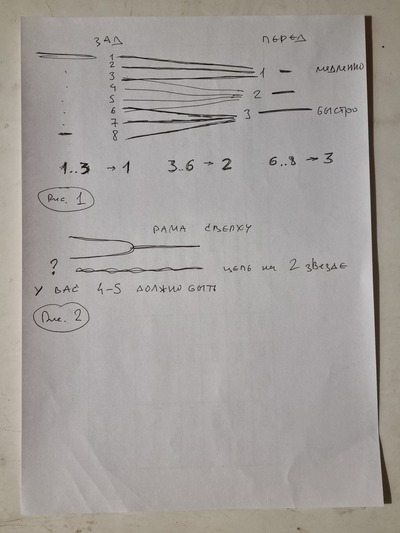 ЗАД ПЕРЕД
1
2
3
4
5
6
7
8
1 МЕДЛЕННО
2
3 БЫСТРО
1..3 → 1 3..6 → 2 6..8 → 3
Рис. 1
РАМА СВЕРХУ
? ЦЕПЬ НА 2 ЗВЕЗДЕ
У ВАС 4-5 ДОЛЖНО БЫТЬ
Рис. 2